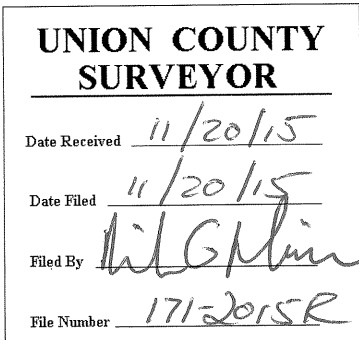 UNION COUNTY
SURVEYOR
Date Received 11/20/15
Date Filed 11/20/15
Filed By
File Number 171-2015R